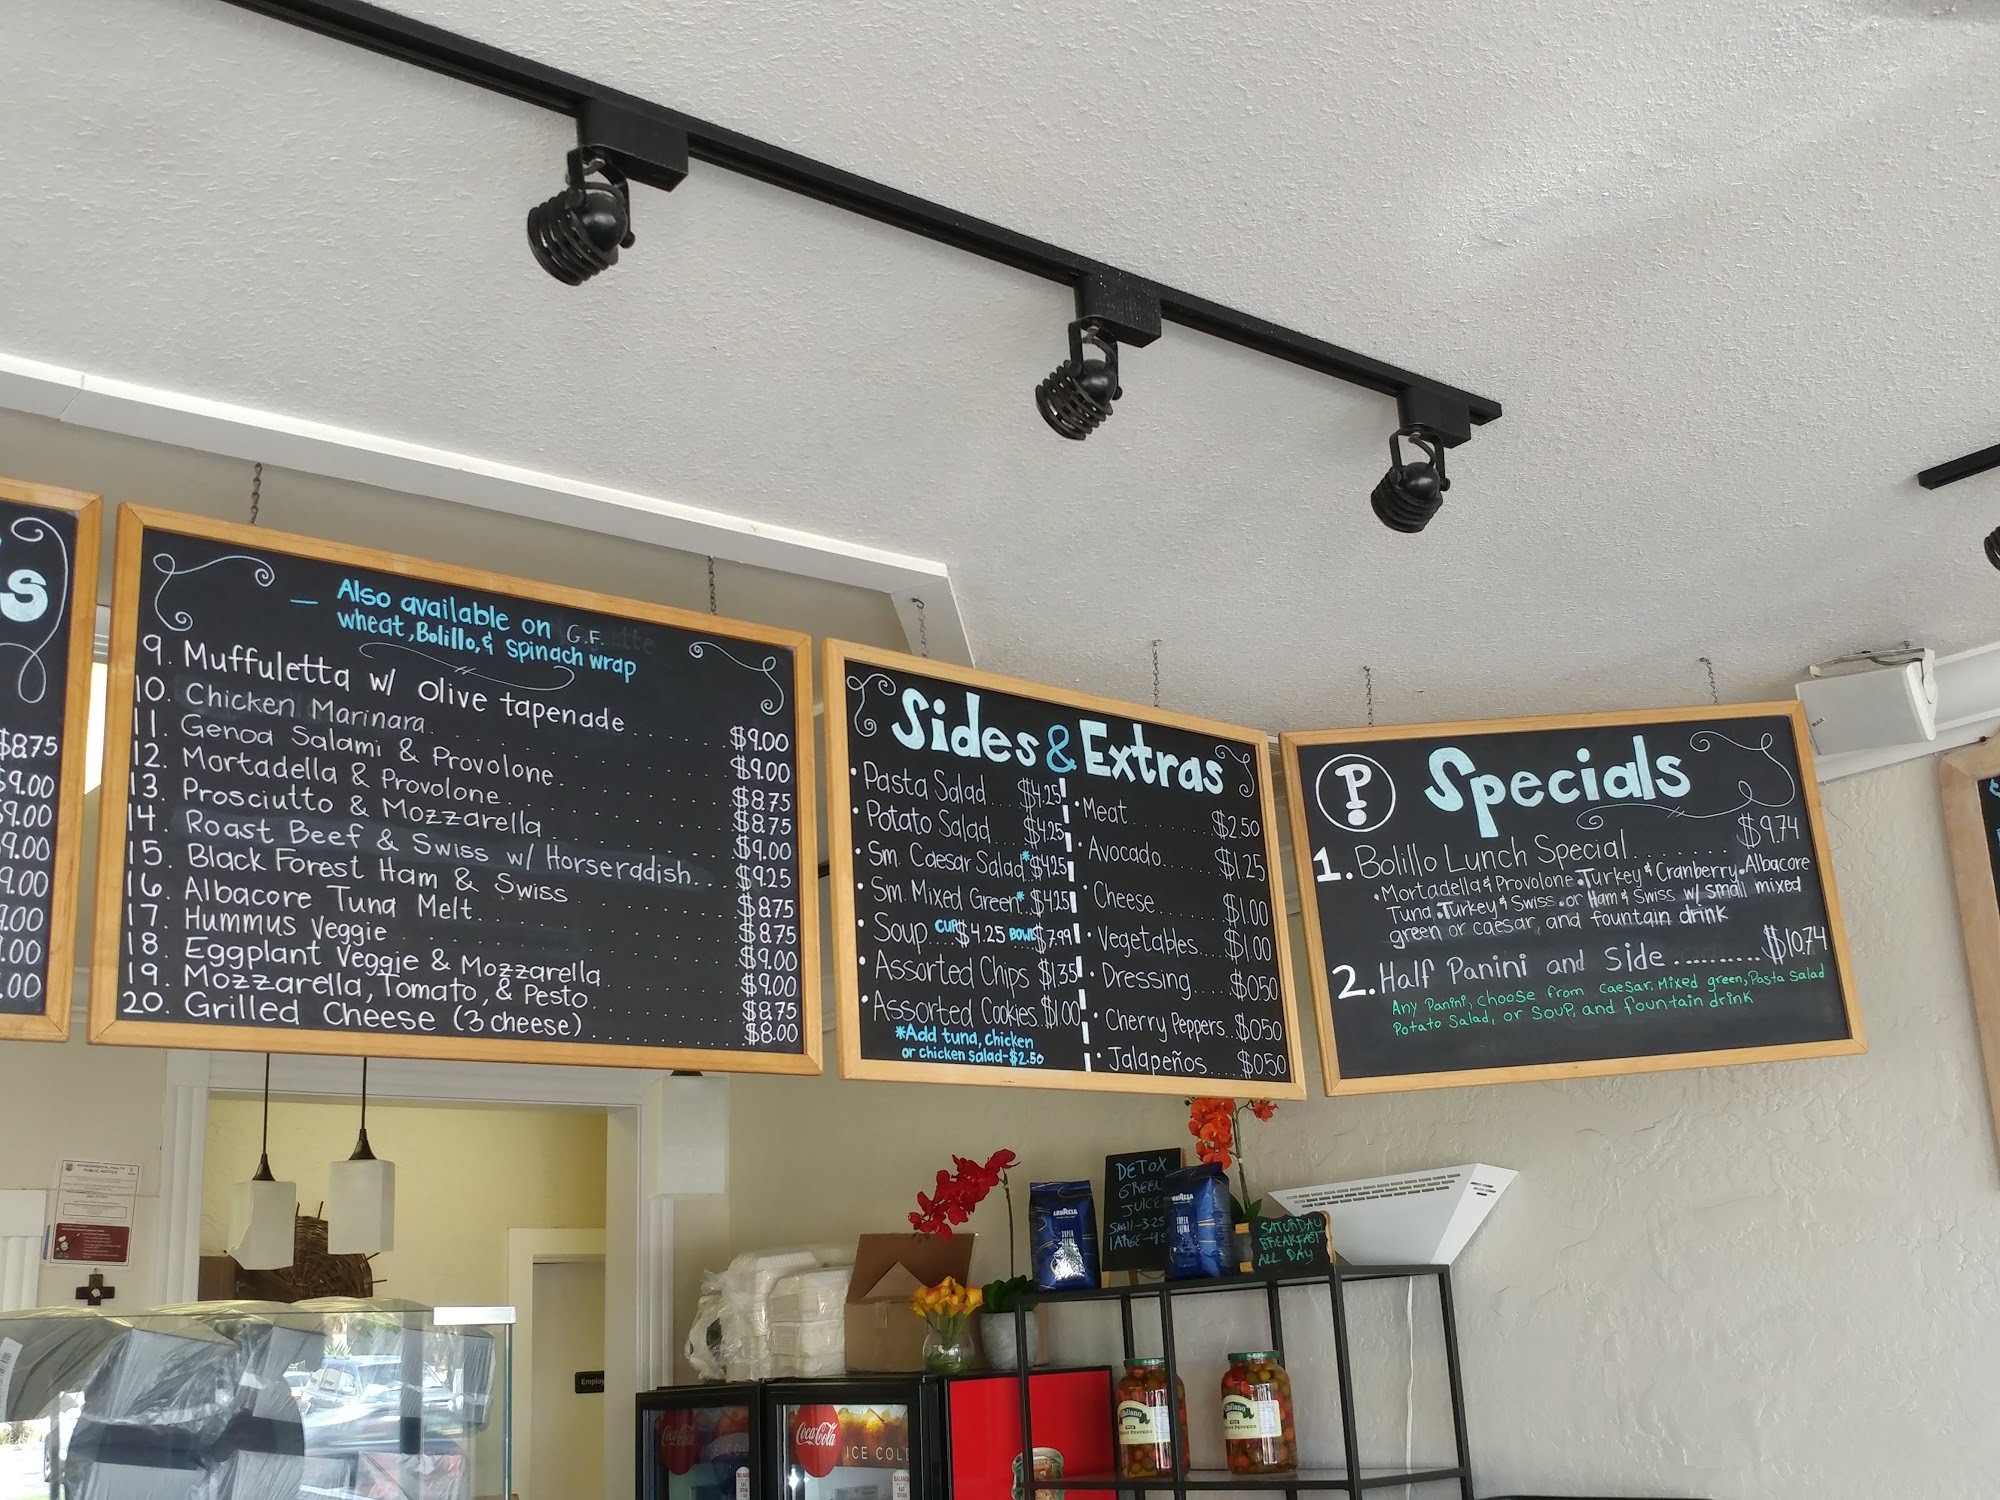 s
$8.75
$9.00
$9.00
9.00
9.00
9.00
.00
.00
Also available on G.F.
wheat, Bolillo, & spinach wrap
9. Muffuletta w/ olive tapenade $9.00
10. Chicken Marinara $9.00
11. Genoa Salami & Provolone $8.75
12. Mortadella & Provolone $8.75
13. Prosciutto & Mozzarella $9.00
14. Roast Beef & Swiss w/ Horseradish $9.25
15. Black Forest Ham & Swiss $8.75
16. Albacore Tuna Melt $8.75
17. Hummus Veggie $9.00
18. Eggplant Veggie & Mozzarella $9.00
19. Mozzarella, Tomato, & Pesto $8.75
20. Grilled Cheese (3 cheese) $8.00
Sides & Extras
• Pasta Salad $4.25
• Potato Salad $4.25
• Sm. Caesar Salad* $4.25
• Sm. Mixed Green* $4.25
• Soup CUP $4.25 BOWL $7.99
• Assorted Chips $1.35
• Assorted Cookies $1.00
*Add tuna, chicken
or chicken salad-$2.50
• Meat $2.50
• Avocado $1.25
• Cheese $1.00
• Vegetables $1.00
• Dressing $0.50
• Cherry Peppers $0.50
• Jalapeños $0.50
P! Specials
1. Bolillo Lunch Special $9.74
• Mortadella & Provolone • Turkey & Cranberry • Albacore
Tuna • Turkey & Swiss • or Ham & Swiss w/ small mixed
green or caesar, and fountain drink
2. Half Panini and Side $10.74
Any Panini, choose from caesar, Mixed green, Pasta Salad
Potato Salad, or Soup, and fountain drink
ENVIRONMENTAL HEALTH
PUBLIC NOTICE
DETOX
GREEN
JUICE
Small-3.25
LAVAZZA
SUPER
CREMA
LAVAZZA
SUPER
CREMA
SATURDAY
BREAKFAST
ALL DAY
Employ
Coca-Cola
ICE COL
Coca-Cola
ICE COL
Giuliano
PEPPERS
Giuliano
CHERRY PEPPERS